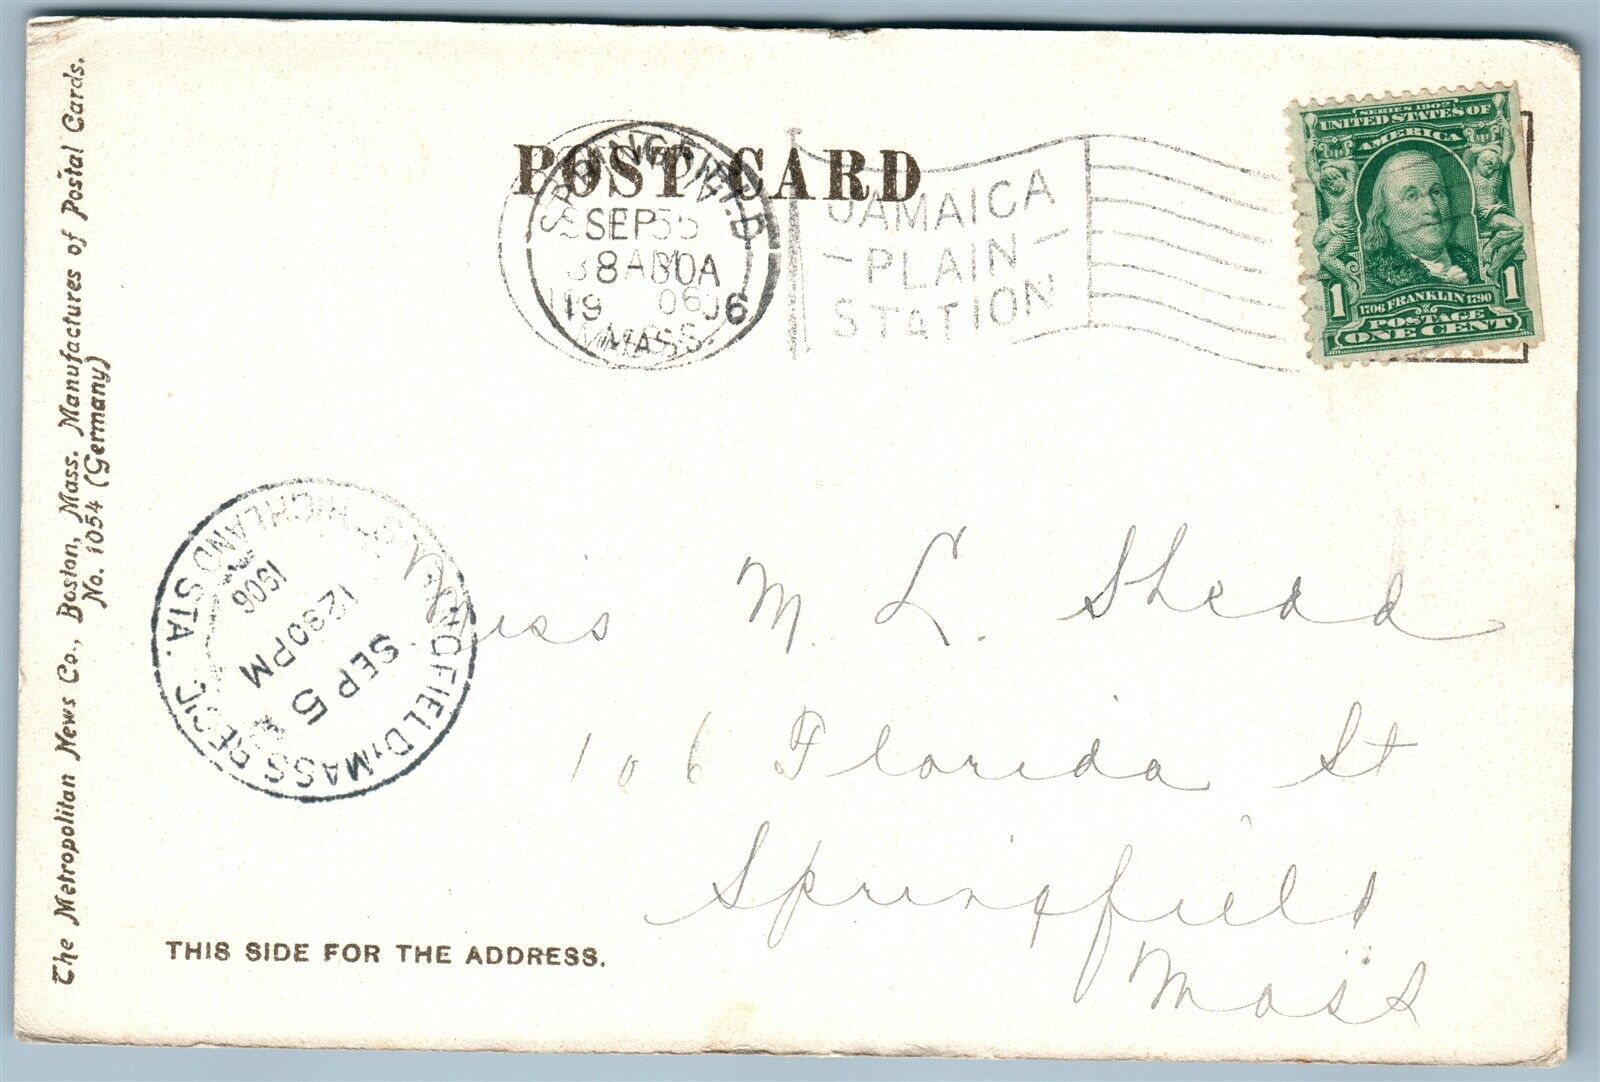 The Metropolitan News Co., Boston, Mass. Manufactures of Postal Cards.
No. 1054 (Germany)
POST CARD
SEP 5
19 06
MASS.
JAMAICA
PLAIN
STATION
SERIES 1902
UNITED STATES OF
AMERICA
1 FRANKLIN 1
1706 1790
POSTAGE
ONE CENT
HIGHLAND STA.
1906
1230 PM
SEP 5
SPRINGFIELD, MASS. REC'D.
Miss M. L. Shedd
106 Florida St
Springfield
Mass
THIS SIDE FOR THE ADDRESS.